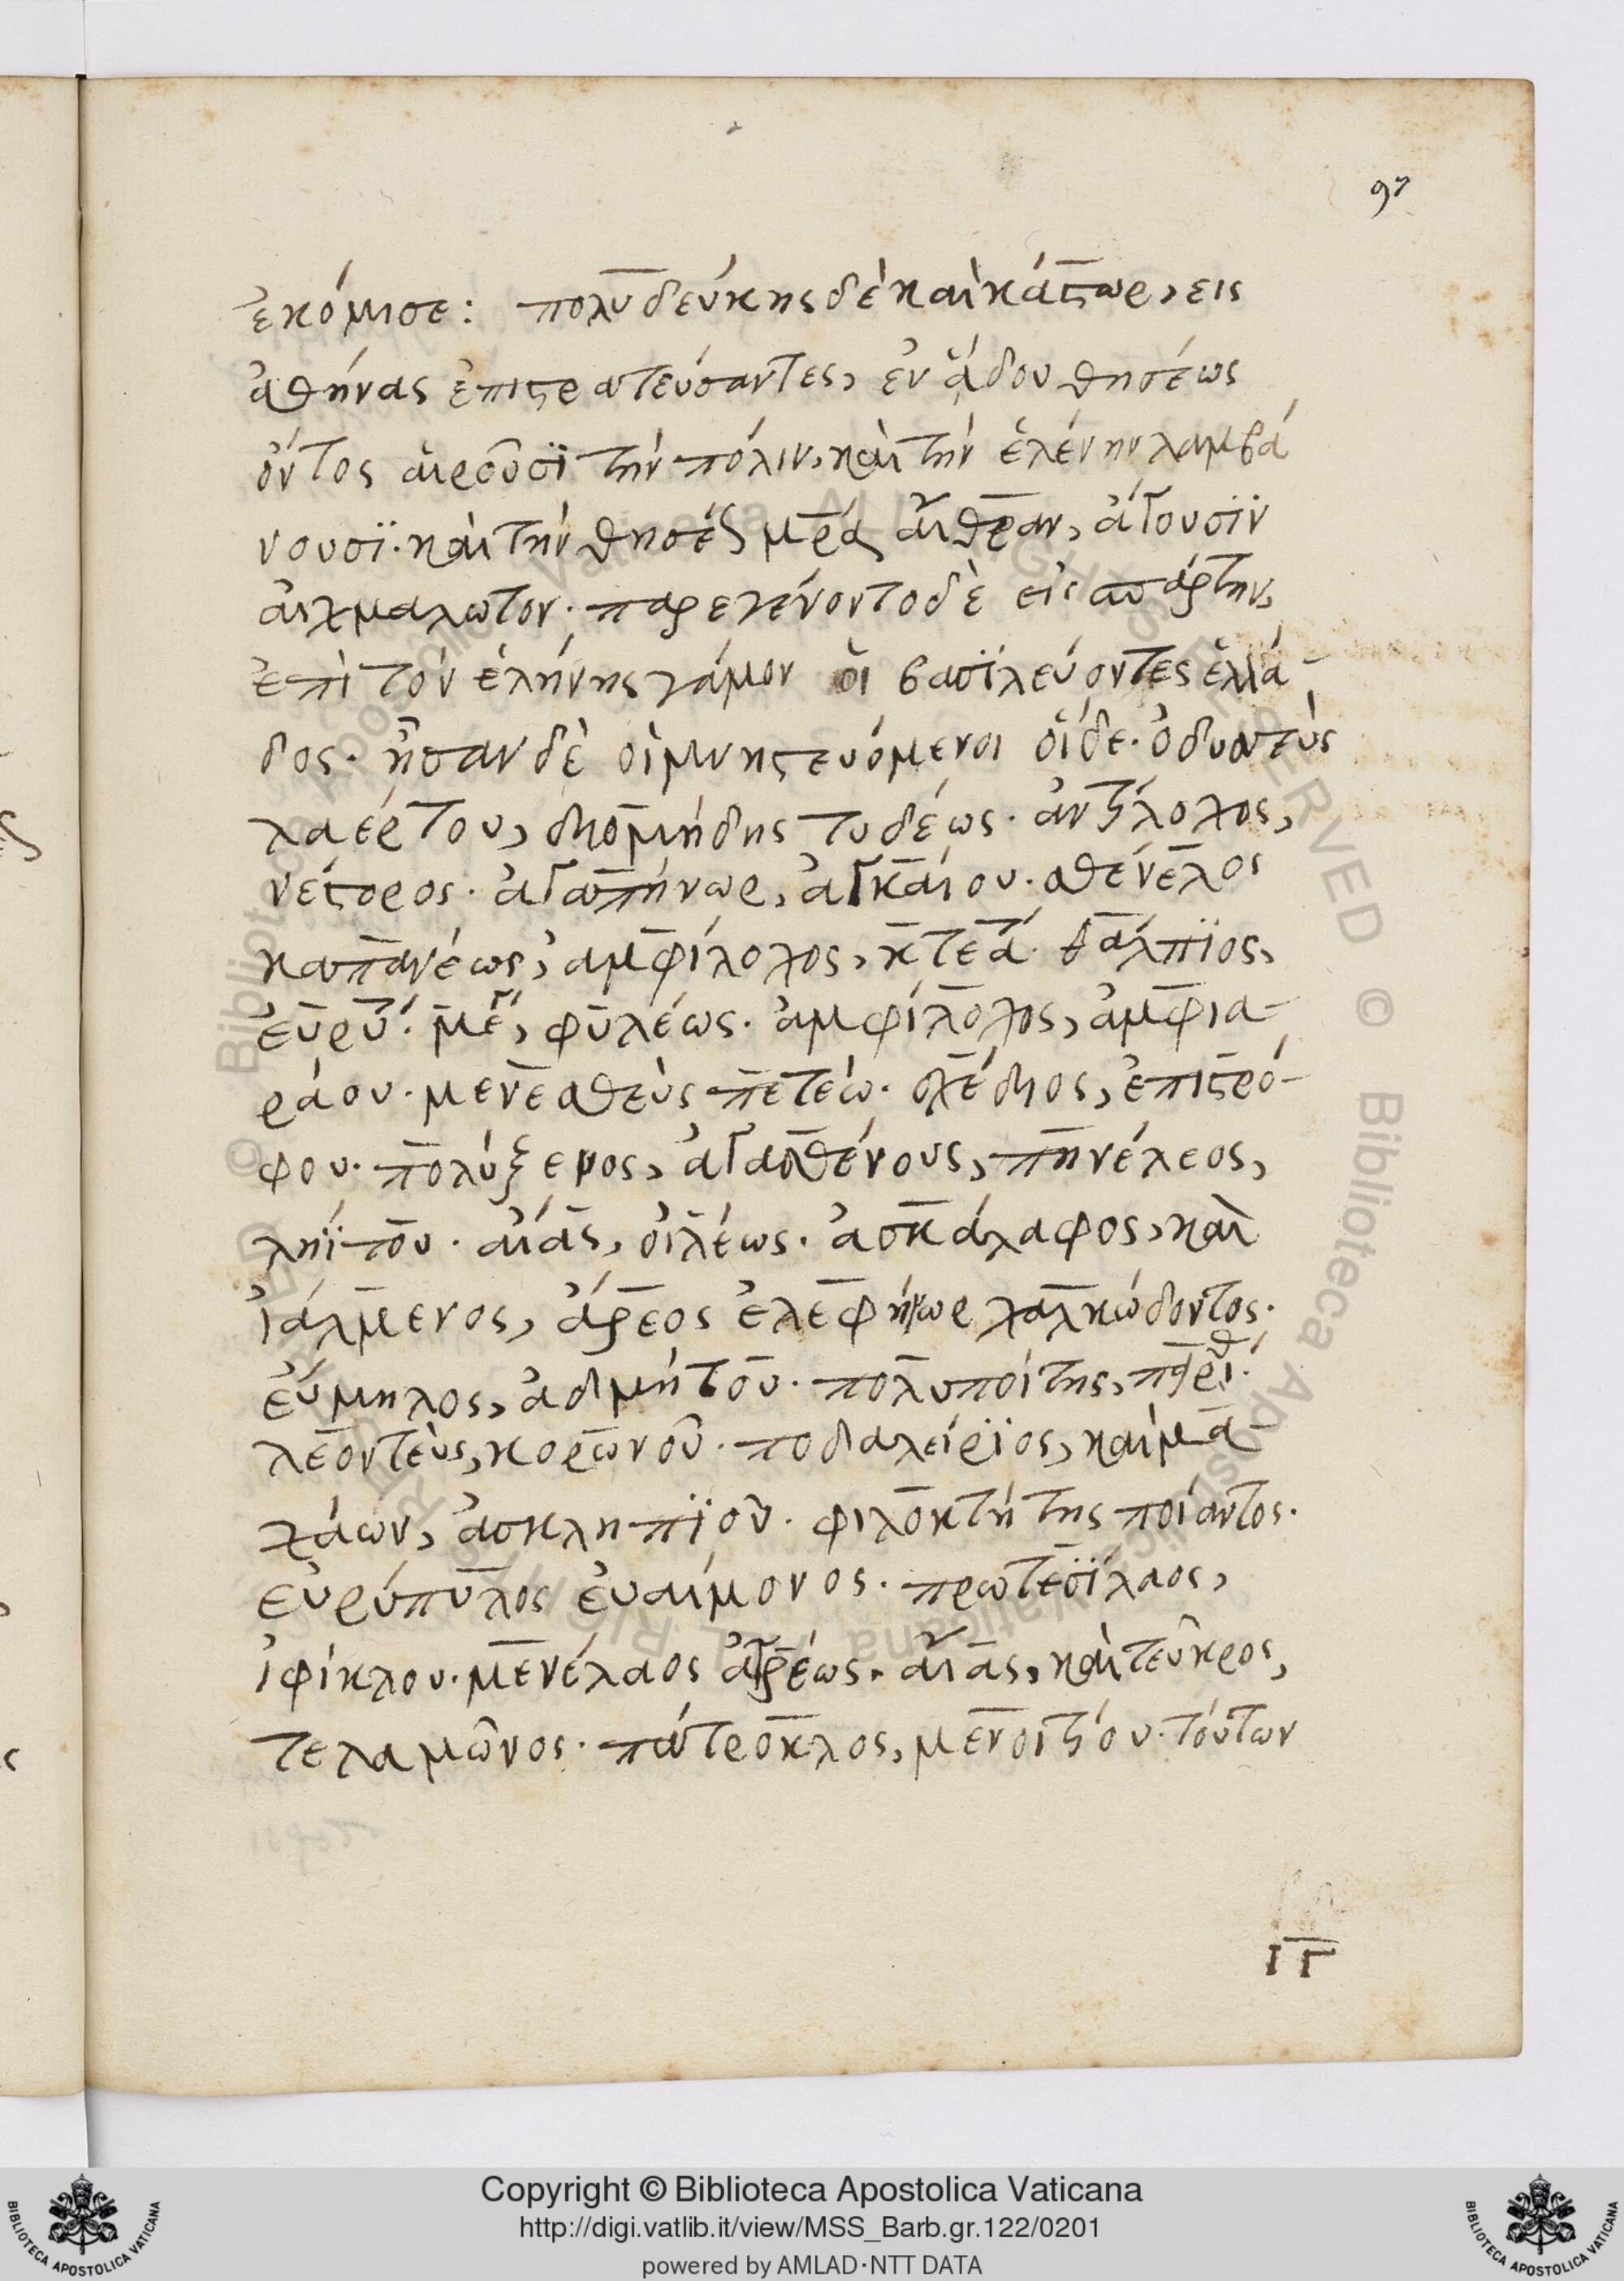 97
ἐκόμισε: πολυδεύκης δὲ καὶ κάστωρ, εις
ἀθήνας ἐπιστρατεύσαντες, ἐν ἅδου θησέως
ὄντος αἱροῦσϊ τὴν πόλιν, καὶ τὴν ἑλένην λαμβά
νουσϊ. καὶ τὴν θησέως μρ̅ά αἴθραν, ἄγουσϊν
αἰχμαλωτον. παρεγένοντο δὲ εἰς σπάρτην,
ἐπὶ τὸν ἑλήνης γάμον οἱ βασϊλεύοντες ἑλλά-
δος. ἦσαν δὲ οἱ μνηστευόμενοι οἵδε. ὀδυσσεὺς
λαέρτου, διομήδης τυδέως. ἀντίλοχος,
νέστορος. ἀγαπήνωρ, ἀγκαίου. σθένελος
καπανέως, αμφίλοχος, κτεά. θάλπϊος,
ἐυρύ. μέγ, φυλέως. ἀμφίλοχος, ἀμφια-
ράου. μενεσθεὺς πετεώ. σχέδιος, ἐπιστρό-
φου. πολύξενος, ἀγασθένους, πηνέλεος,
ληΐτου. αἴάς, οἰλέως. ἀσκάλαφος, καὶ
ἰάλμενος, ἄρεος ἐλεφήνωρ χαλκώδοντος.
ἐύμηλος, ἀδμήτου. πολυποίτης, πειρίθ.
λεοντεὺς, κορώνου. ποδαλείρϊος, καὶ μα-
χάων, ἀσκληπϊοῦ. φιλοκτήτης ποίαντος.
ἐυρύπυλος ἐυαίμονος. πρωτεσϊλαος,
ἰφίκλου. μενέλαος ἀτρέως. αἴας, καὶ τεῦκρος,
τελαμῶνος. πάτροκλος, μενοιτίου. τούτων
ΙΓ
Copyright © Biblioteca Apostolica Vaticana
http://digi.vatlib.it/view/MSS_Barb.gr.122/0201
powered by AMLAD·NTT DATA
BIBLIOTECA APOSTOLICA VATICANA
BIBLIOTECA APOSTOLICA VATICANA